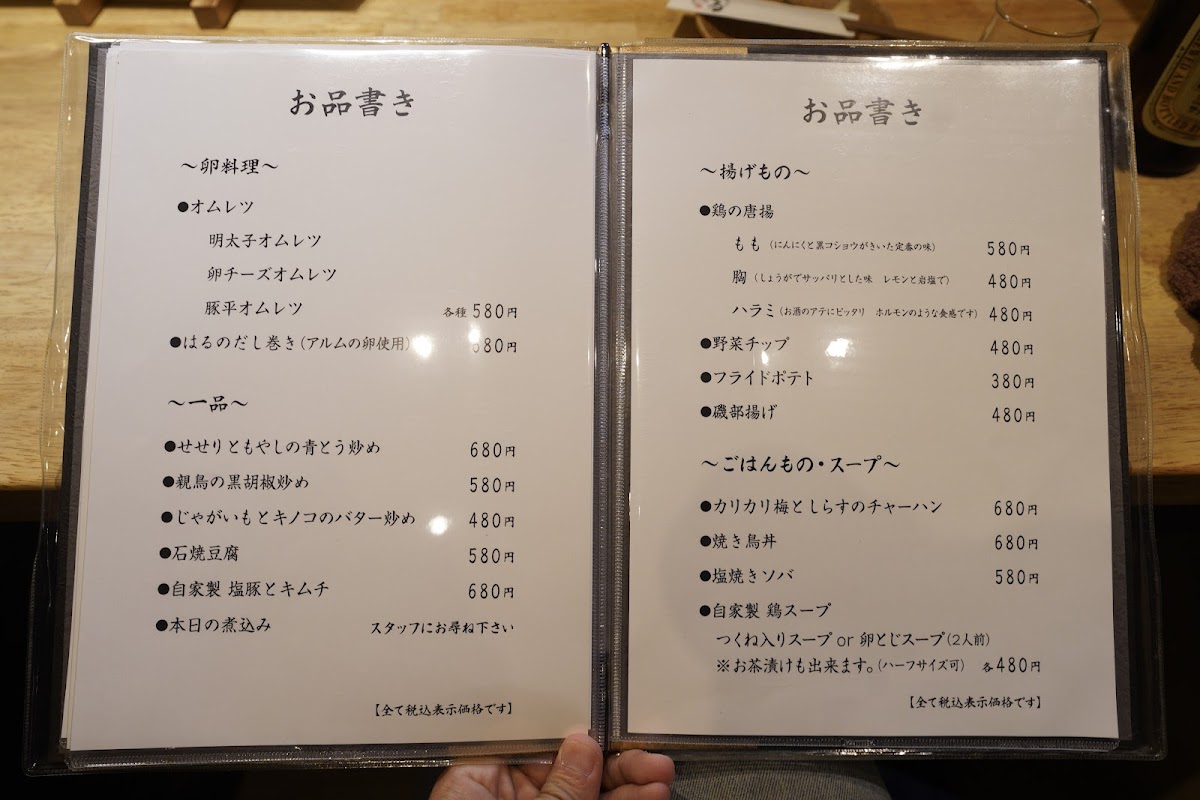 お品書き
～卵料理～
●オムレツ
明太子オムレツ
卵チーズオムレツ
豚平オムレツ 各種 580円
●はるのだし巻き(アルムの卵使用) 680円
～一品～
●せせりともやしの青とう炒め 680円
●親鳥の黒胡椒炒め 580円
●じゃがいもとキノコのバター炒め 480円
●石焼豆腐 580円
●自家製 塩豚とキムチ 680円
●本日の煮込み スタッフにお尋ね下さい
【全て税込表示価格です】
お品書き
～揚げもの～
●鶏の唐揚
もも (にんにくと黒コショウがきいた定番の味) 580円
胸 (しょうがでサッパリとした味 レモンと岩塩で) 480円
ハラミ (お酒のアテにピッタリ ホルモンのような食感です) 480円
●野菜チップ 480円
●フライドポテト 380円
●磯部揚げ 480円
～ごはんもの・スープ～
●カリカリ梅としらすのチャーハン 680円
●焼き鳥丼 680円
●塩焼きソバ 580円
●自家製 鶏スープ
つくね入りスープ or 卵とじスープ(2人前)
※お茶漬けも出来ます。(ハーフサイズ可) 各480円
【全て税込表示価格です】